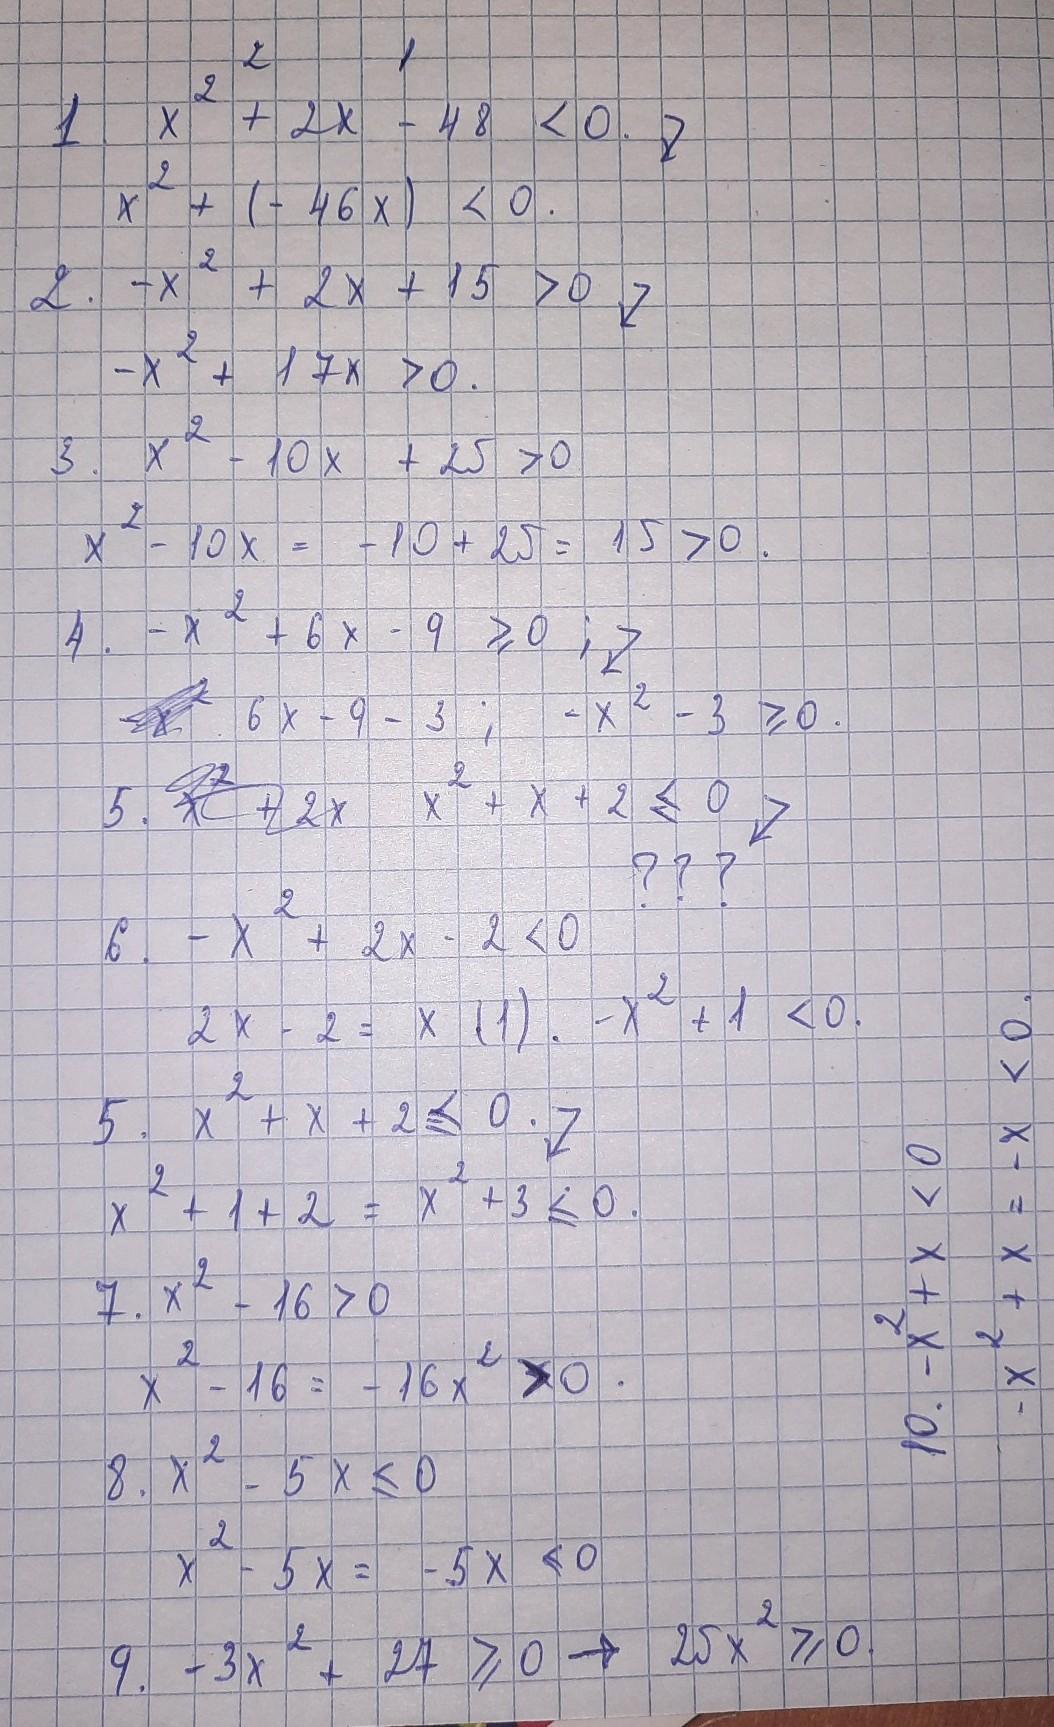 2 1
1. x² + 2x - 48 < 0.
x² + (- 46x) < 0.
2. -x² + 2x + 15 > 0
-x² + 17x > 0.
3. x² - 10x + 25 > 0
x² - 10x = -10 + 25 = 15 > 0.
4. -x² + 6x - 9 ≥ 0 ;
6x - 9 - 3 ; -x² - 3 ≥ 0.
5. x² + 2x x² + x + 2 ≤ 0
? ? ?
6. -x² + 2x - 2 < 0
2x - 2 = x (1). -x² + 1 < 0.
5. x² + x + 2 ≤ 0.
x² + 1 + 2 = x² + 3 ≤ 0.
7. x² - 16 > 0
x² - 16 = -16x² > 0.
8. x² - 5x ≤ 0
x² - 5x = -5x < 0
9. -3x² + 27 ≥ 0 → 25x² ≥ 0.
10. -x² + x < 0
-x² + x = -x < 0.